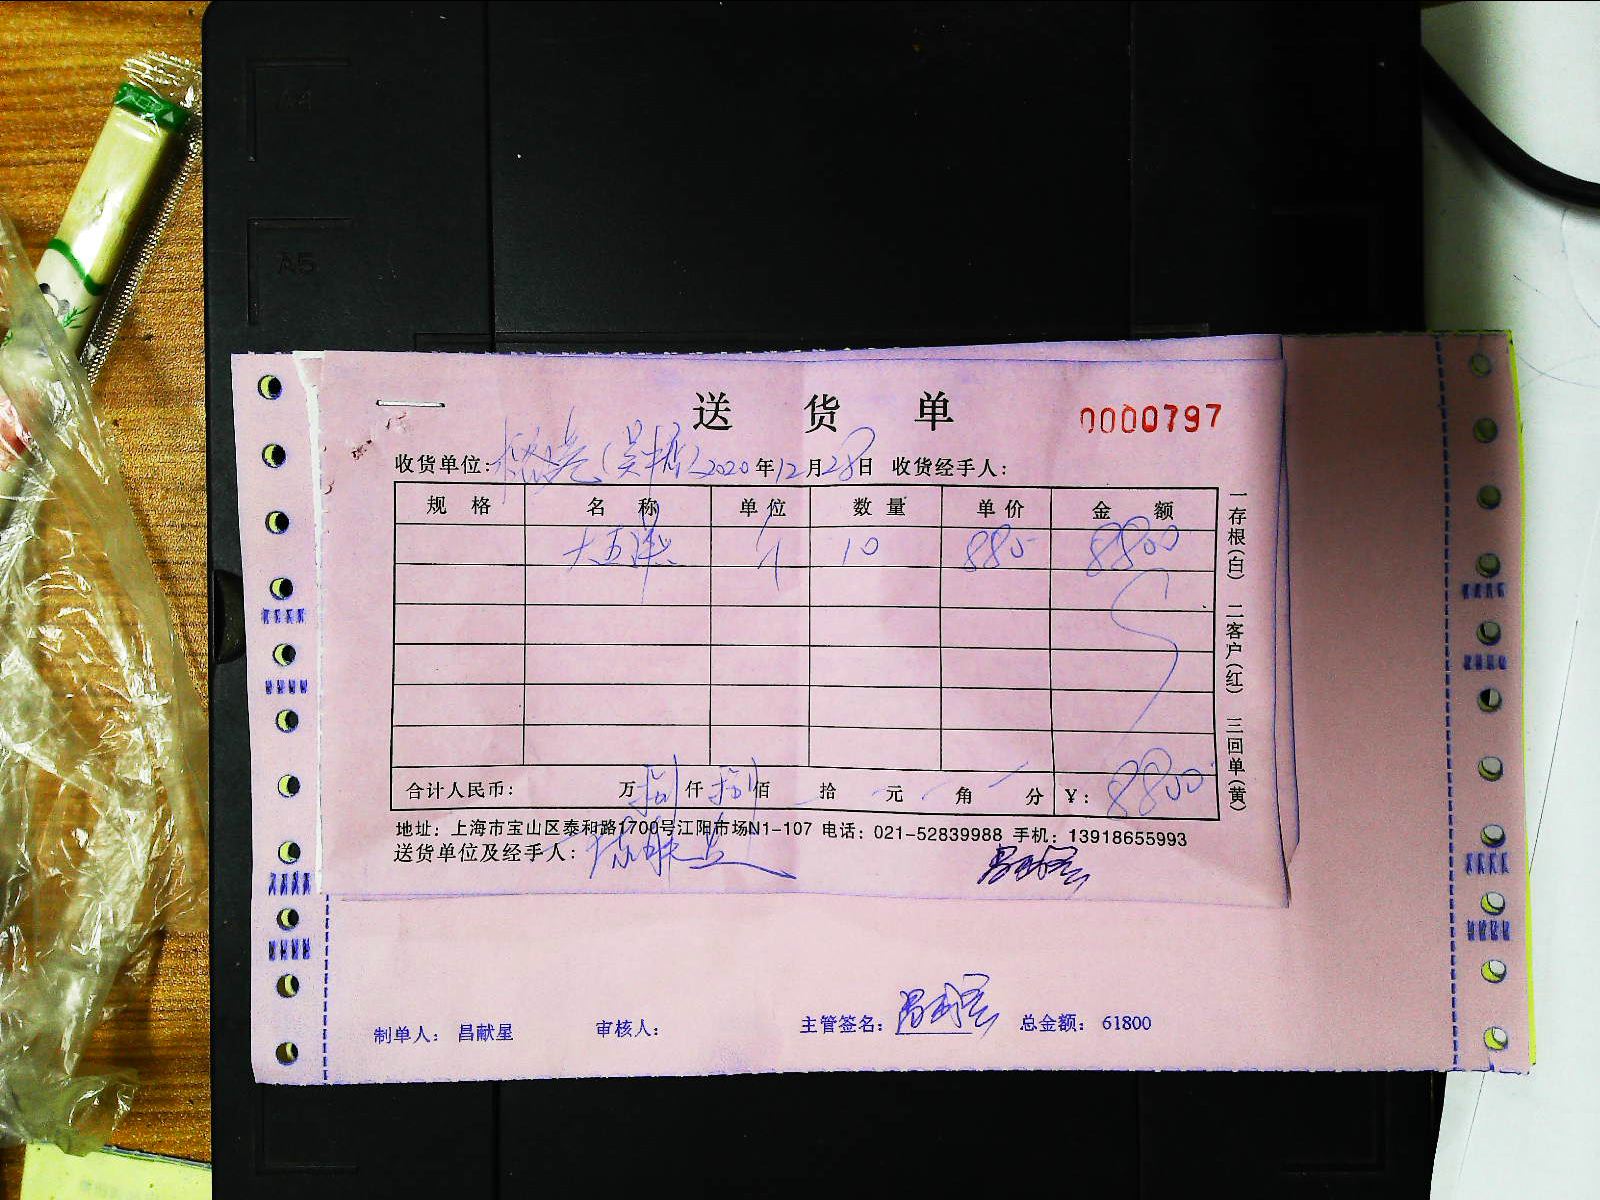 A4
A5
送货单
0000797
收货单位: (吴中店) 2020年12月28日 收货经手人:
规格 名称 单位 数量 单价 金额
大五洋 个 10 880 8800
合计人民币: 万捌仟捌佰 拾 元 角 分 ¥: 8800
地址: 上海市宝山区泰和路1700号江阳市场N1-107 电话: 021-52839988 手机: 13918655993
送货单位及经手人:
一存根(白) 二客户(红) 三回单(黄)
制单人: 昌献星 审核人: 主管签名: 总金额: 61800